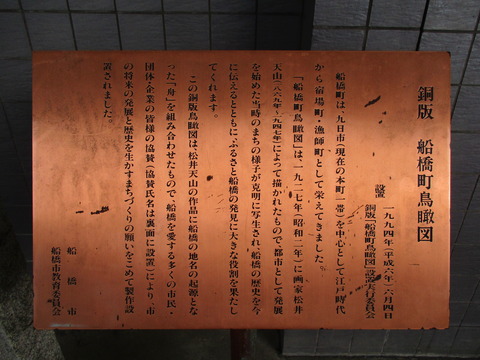 銅版 船橋町鳥瞰図
設置
一九九四年(平成六年)六月四日
銅版「船橋町鳥瞰図」設置実行委員会
船橋町は、九日市(現在の本町一帯)を中心として江戸時代
から宿場町・漁師町として栄えてきました。
「船橋町鳥瞰図」は、一九二七年(昭和二年)に画家松井
天山(一八六九年~一九四七年)によって描かれたもので、都市として発展
を始めた当時のまちの様子が克明に写生され、船橋の歴史を今
に伝えるとともに、ふるさと船橋の発見に大きな役割を果たし
てくれます。
この銅版鳥瞰図は、松井天山の作品に船橋の地名の起源とな
った「舟」を組み合わせたもので、船橋を愛する多くの市民・
団体・企業の皆様の協賛(協賛氏名は裏面に設置)により、市
の将来の発展と歴史を生かすまちづくりの願いをこめて製作設
置されました。
船橋市
船橋市教育委員会